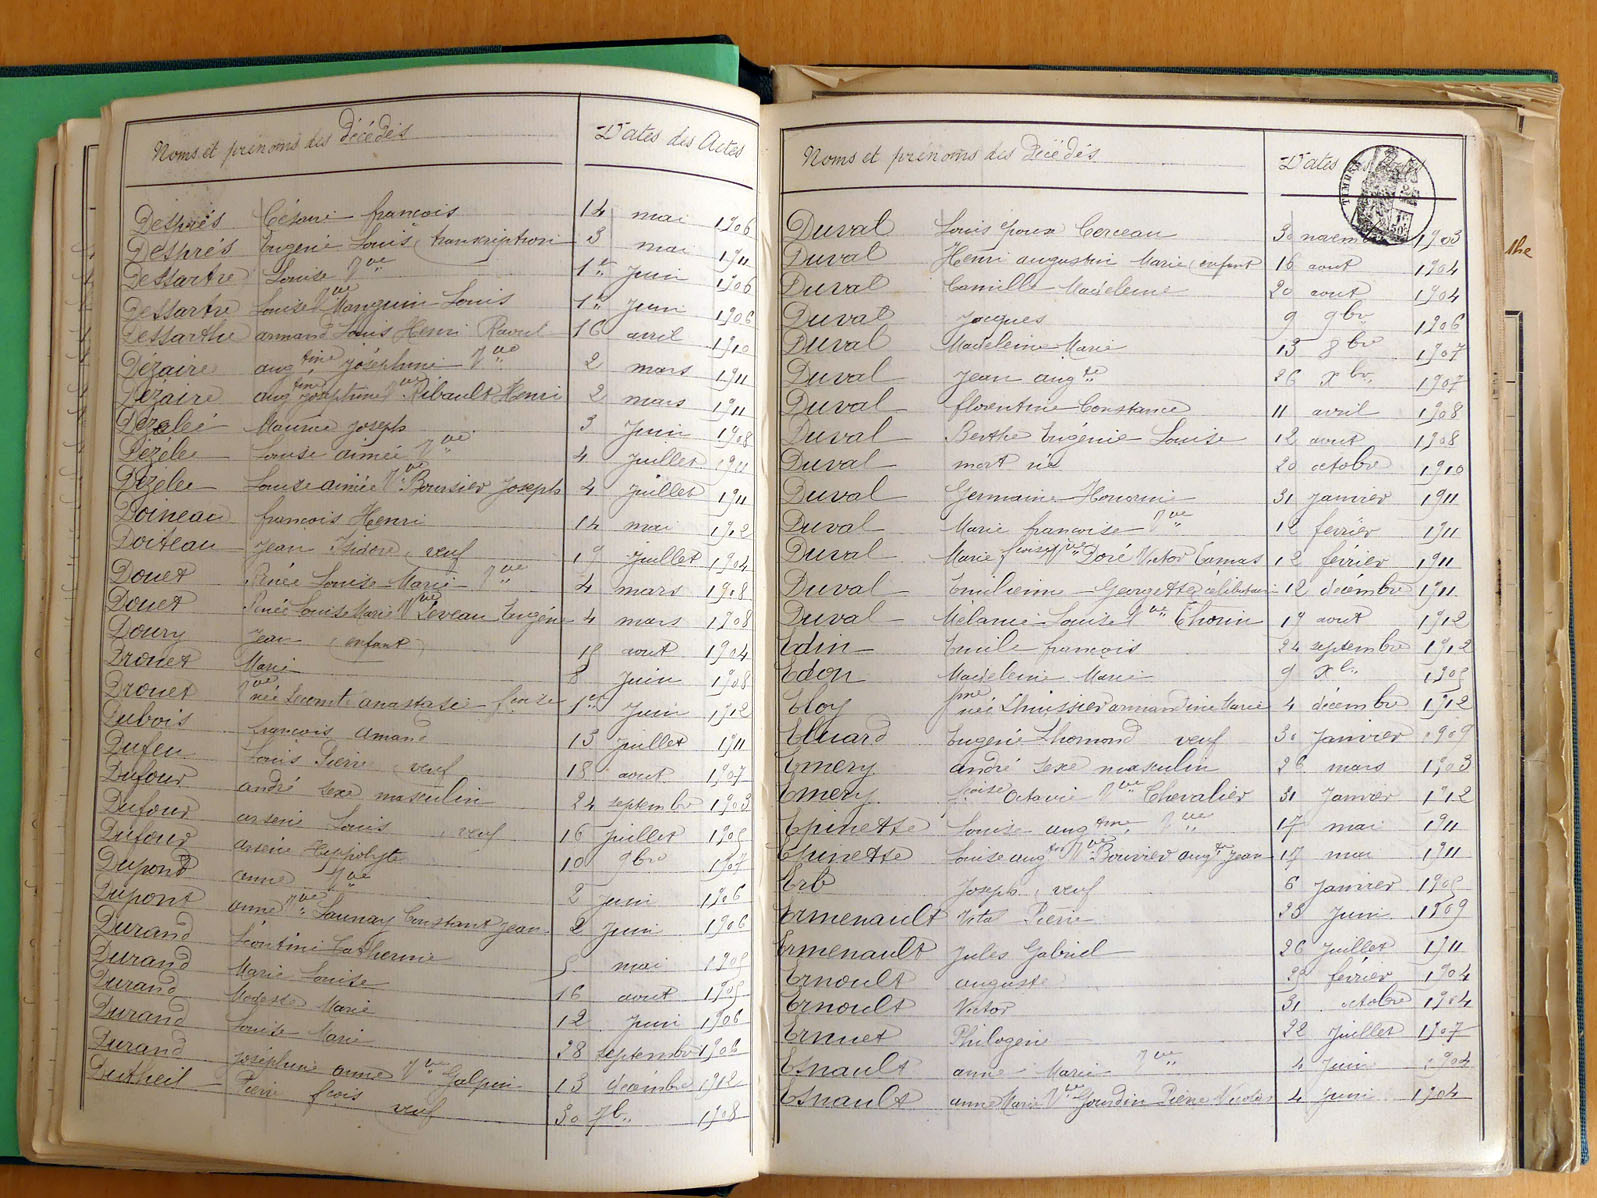 Noms et prénoms des Décédés Dates des Actes
Després Césaire françois 14 mai 1906
Després Eugenie Louis (transkription 3 mai 1911
Dessartre Louise Vve 1er Juin 1906
Dessartre Louise Vve Manguin Louis 1er Juin 1906
Dessarthe armand Louis Henri Raoul 16 avril 1910
Dézaire augtine Joséphine Vve 2 mars 1911
Dézaire augtine Josephine Vve Ribault Henri 2 mars 1911
Dezélée Maurice Joseph 3 Juin 1908
Dézélée Louise aimée Vve 4 Juillet 1911
Dézélée Louise aimée Vve Boursier Joseph 4 Juillet 1911
Doineau francois Henri 14 mai 1912
Doiteau Jean Isidore, veuf 19 Juillet 1904
Douet Renée Louise Marie Vve 4 mars 1908
Douet Renée Louise Marie Vve Leveau Eugène 4 mars 1908
Doury Jean (enfant) 18 aout 1904
Drouet Marie 8 Juin 1908
Drouet Vve née Lecomte anastasie 1er Juin 1912
Dubois francois amand 13 Juillet 1911
Dufeu Louis Pierre veuf 18 aout 1907
Dufour andré sexe masculin 24 septembre 1903
Dufour arsene Louis, veuf 16 Juillet 1905
Dufour arsène Hippolyte 10 9bre 1907
Dupont anne Vve 2 Juin 1906
Dupont anne Vve Launay Constant Jean 2 Juin 1906
Durand Léontine Catherine 5 mai 1905
Durand Marie Louise 16 aout 1905
Durand Modeste Marie 12 Juin 1906
Durand Louise Marie 28 septembre 1906
Durand Joséphine anne Vve Galpin 13 décembre 1912
Dutheil Pierre fçois veuf 30 7b. 1908
Noms et prénoms des Décédés Dates
TIMBRE
Duval Louis époux Cerceau 30 novem 1903
Duval Henri augustin Marie (enfant 16 aout 1904
Duval Camille Madeleine 20 aout 1904
Duval Jacques 9 9br 1906
Duval Madeleine Marie 13 8bre 1907
Duval Jean augte 26 Xbr. 1907
Duval florentine Constance 11 avril 1908
Duval Berthe Eugénie Louise 12 aout 1908
Duval mort né 20 octobre 1910
Duval Germaine 31 Janvier 1911
Duval Marie francoise Vve 12 fevrier 1911
Duval Marie Vve Doré Victor 12 février 1911
Duval Emilienne Georgette célibataire 12 décembre 1911
Duval Mélanie Louise Vve Thorin 19 aout 1912
Edin Emile francois 24 septembre 1912
Edon Madeleine Marie 9 Xb. 1905
Eloy fme née Lhuissier armandine Marie 4 décembre 1912
Eluard Eugenie Lhomond veuf 30 Janvier 1909
Emery andré sexe masculin 26 mars 1903
Emery fçoise Octavie Vve Chevalier 31 Janvier 1912
Epinette Louise augtine Vve 17 mai 1911
Epinette Louise augtine Vve Bouvier augte Jean 17 mai 1911
Erb Joseph, veuf 6 Janvier 1905
Ermenault Vital Pierre 23 Juin 1909
Ermenault Jules Gabriel 26 Juillet 1911
Ernoult auguste 29 février 1904
Ernoult Victor 31 octobre 1904
Ernuet Philogène 22 Juillet 1907
Esnault anne Marie Vve 4 Juin 1904
Esnault anne Marie Vve Gourdin Pierre Nicolas 4 Juin 1904